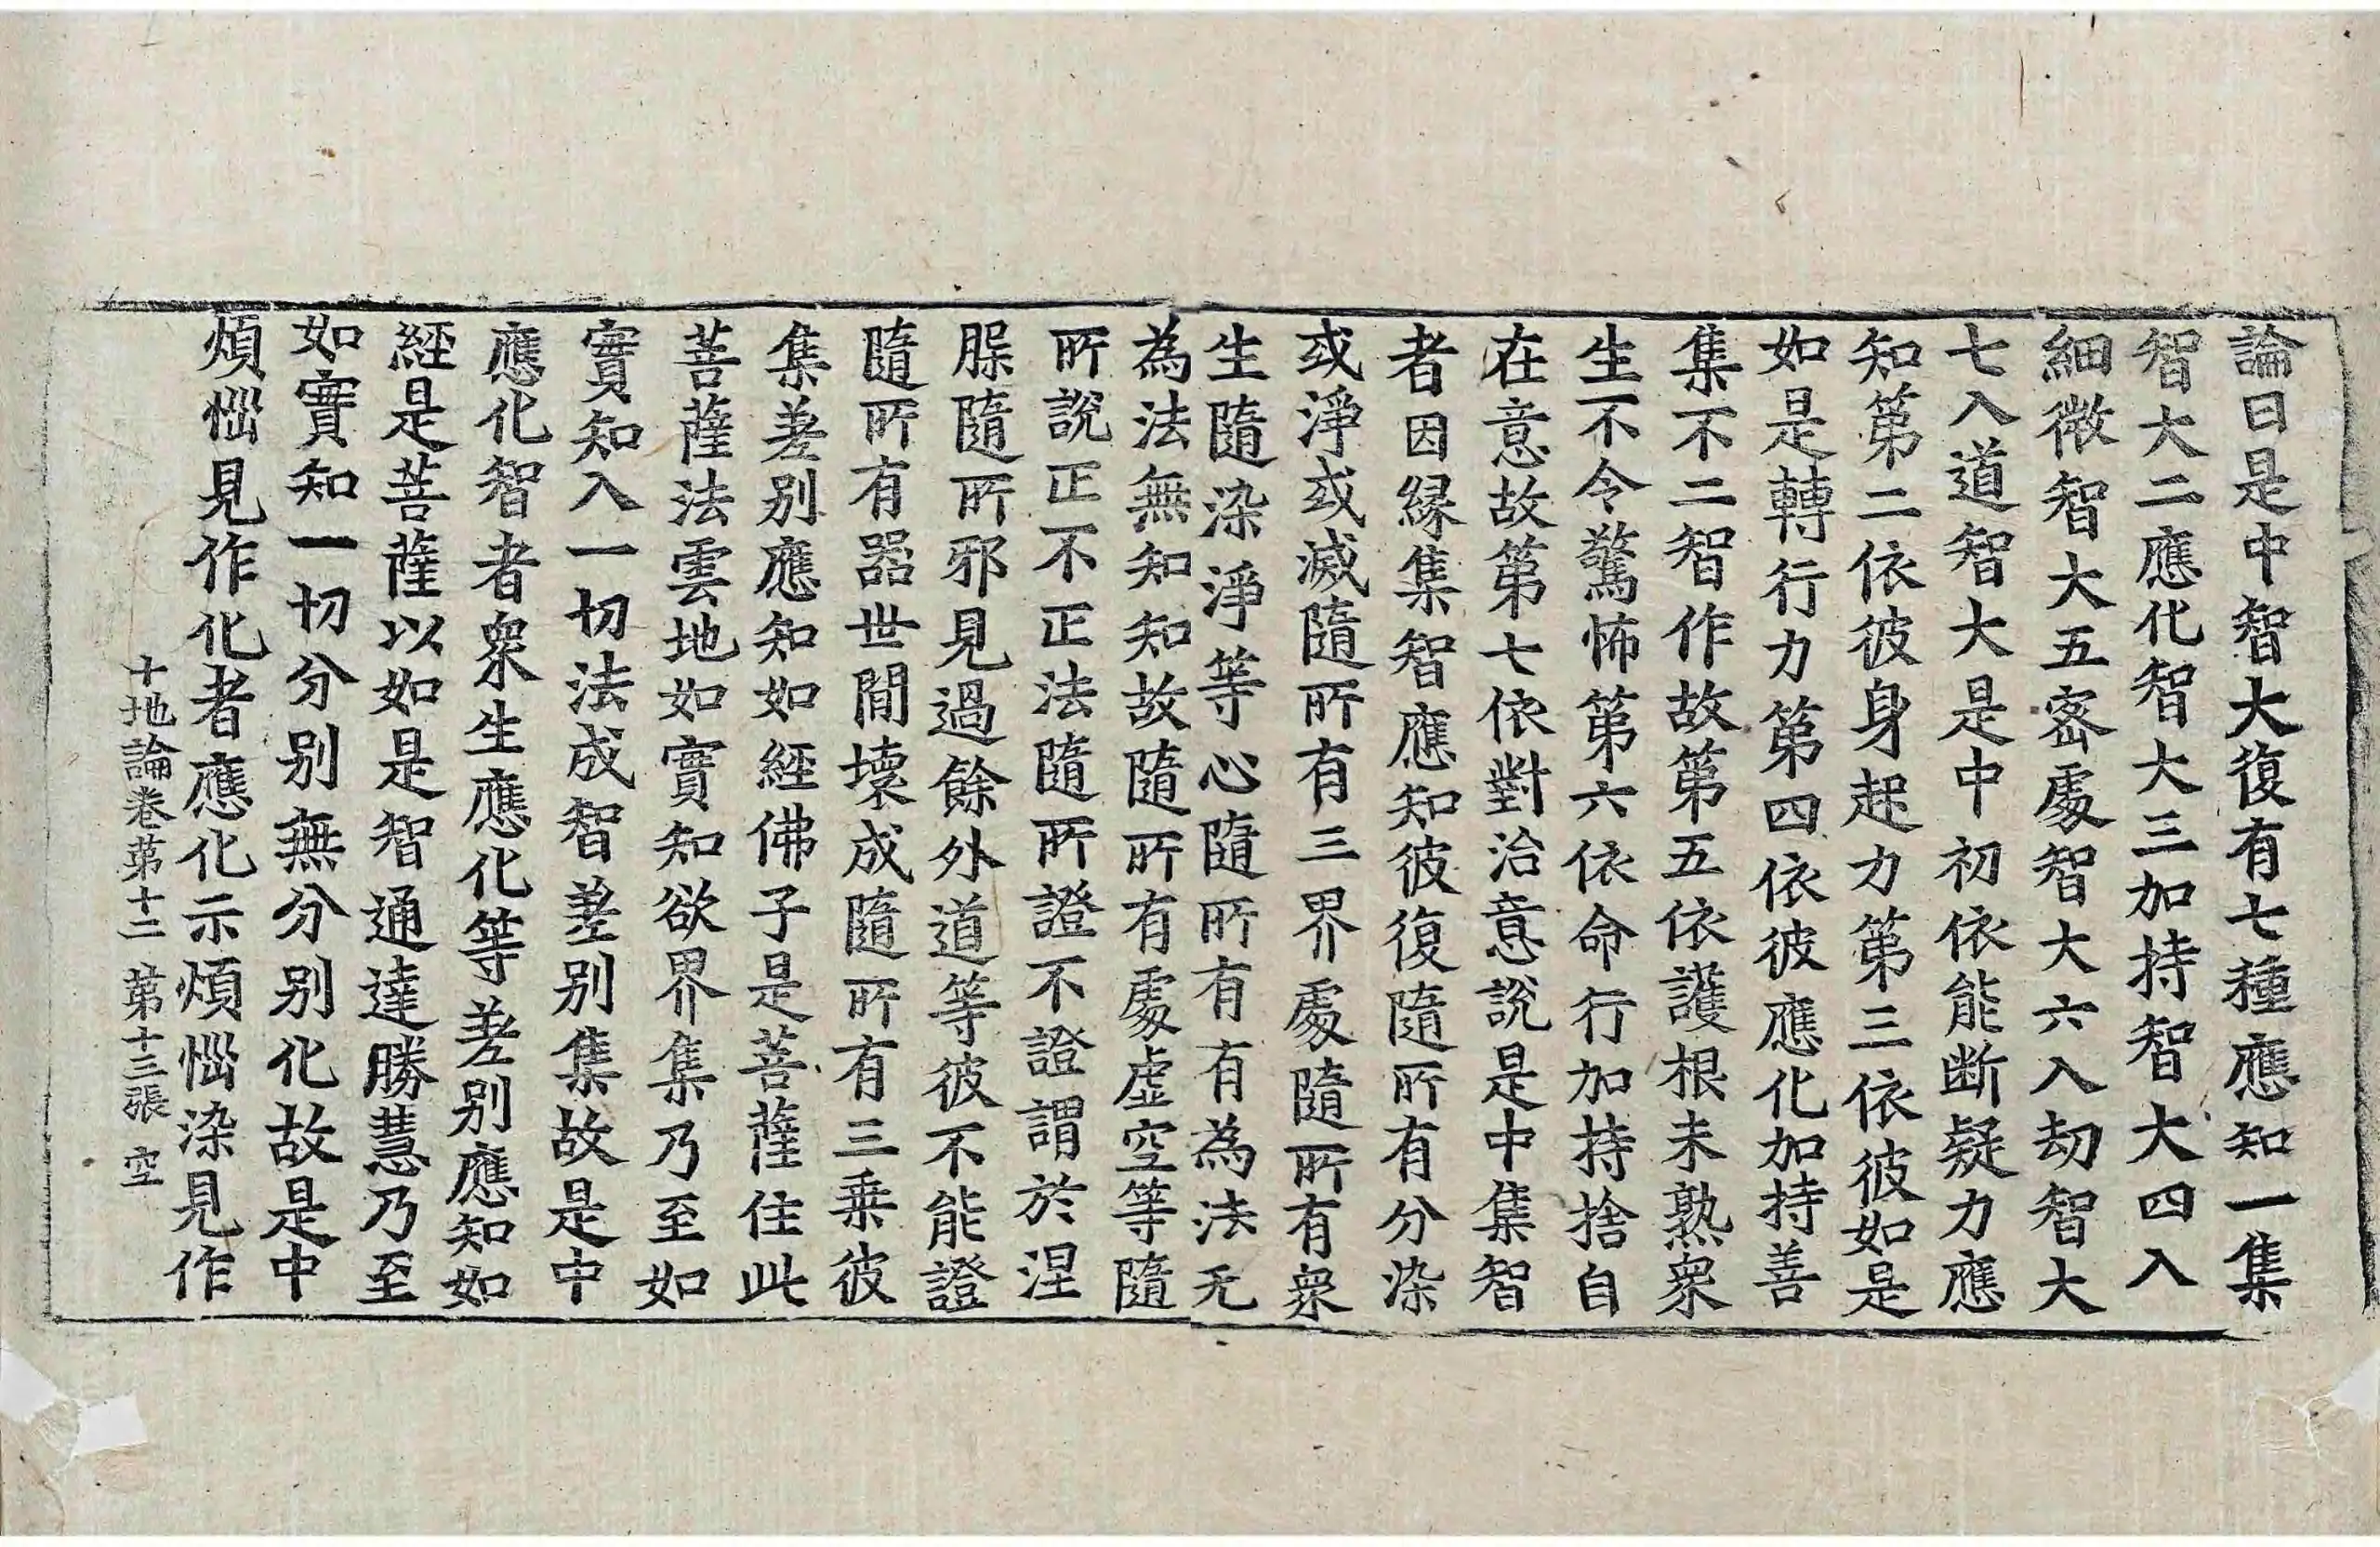 論曰是中智大復有七種應知一集
智大二應化智大三加持智大四入
細微智大五宻處智大六入劫智大
七入道智大是中初依能断疑力應
知第二依彼身起力第三依彼如是
如是轉行力第四依彼應化加持善
集不二智作故第五依護根未熟衆
生不令驚怖第六依命行加持捨自
在意故第七依對治意說是中集智
者因縁集智應知彼復隨所有分染
或淨或滅隨所有三界處隨所有衆
生隨染淨等心隨所有有為法无
為法無知知故隨所有處虛空等隨
所說正不正法隨所證不證謂於涅
槃隨所邪見過餘外道等彼不能證
隨所有器世間壊成隨所有三乗彼
集差别應知如經佛子是菩薩住此
菩薩法雲地如實知欲界集乃至如
實知入一切法成智差别集故是中
應化智者衆生應化等差别應知如
經是菩薩以如是智通達勝慧乃至
如實知一切分别無分别化故是中
煩惱見作化者應化示煩惱染見作
十地論卷第十二 第十三張 空